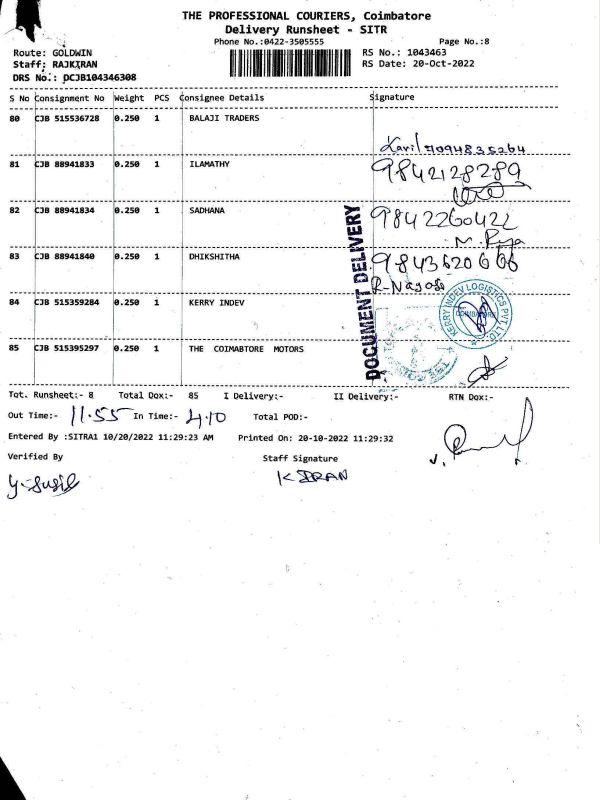 THE PROFESSIONAL COURIERS, Coimbatore
Delivery Runsheet - SITR
Phone No.:0422-3505555 Page No.:8
Route: GOLDWIN RS No.: 1043463
Staff: RAJKIRAN RS Date: 20-Oct-2022
DRS No.: DCJB104346308
S No Consignment No Weight PCS Consignee Details Signature
80 CJB 515536728 0.250 1 BALAJI TRADERS
81 CJB 88941833 0.250 1 ILAMATHY 9842128289
82 CJB 88941834 0.250 1 SADHANA 9842260422
83 CJB 88941840 0.250 1 DHIKSHITHA 9843620666
84 CJB 515359284 0.250 1 KERRY INDEV
KERRY INDEV LOGISTICS PVT LTD
COIMBATORE
DOCUMENT DELIVERY
85 CJB 515395297 0.250 1 THE COIMABTORE MOTORS
Tot. Runsheet:- 8 Total Dox:- 85 I Delivery:- II Delivery:- RTN Dox:-
Out Time:- 11.55 In Time:- 4.10 Total POD:-
Entered By :SITRA1 10/20/2022 11:29:23 AM Printed On: 20-10-2022 11:29:32
Verified By Staff Signature